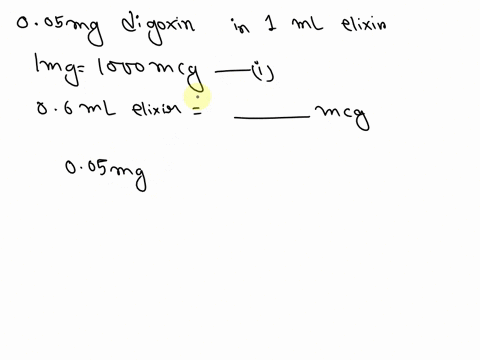 0.05mg digoxin in 1 ml elixir
1mg = 1000 mcg —(i)
0.6 mL elixir = ______ mcg
0.05mg